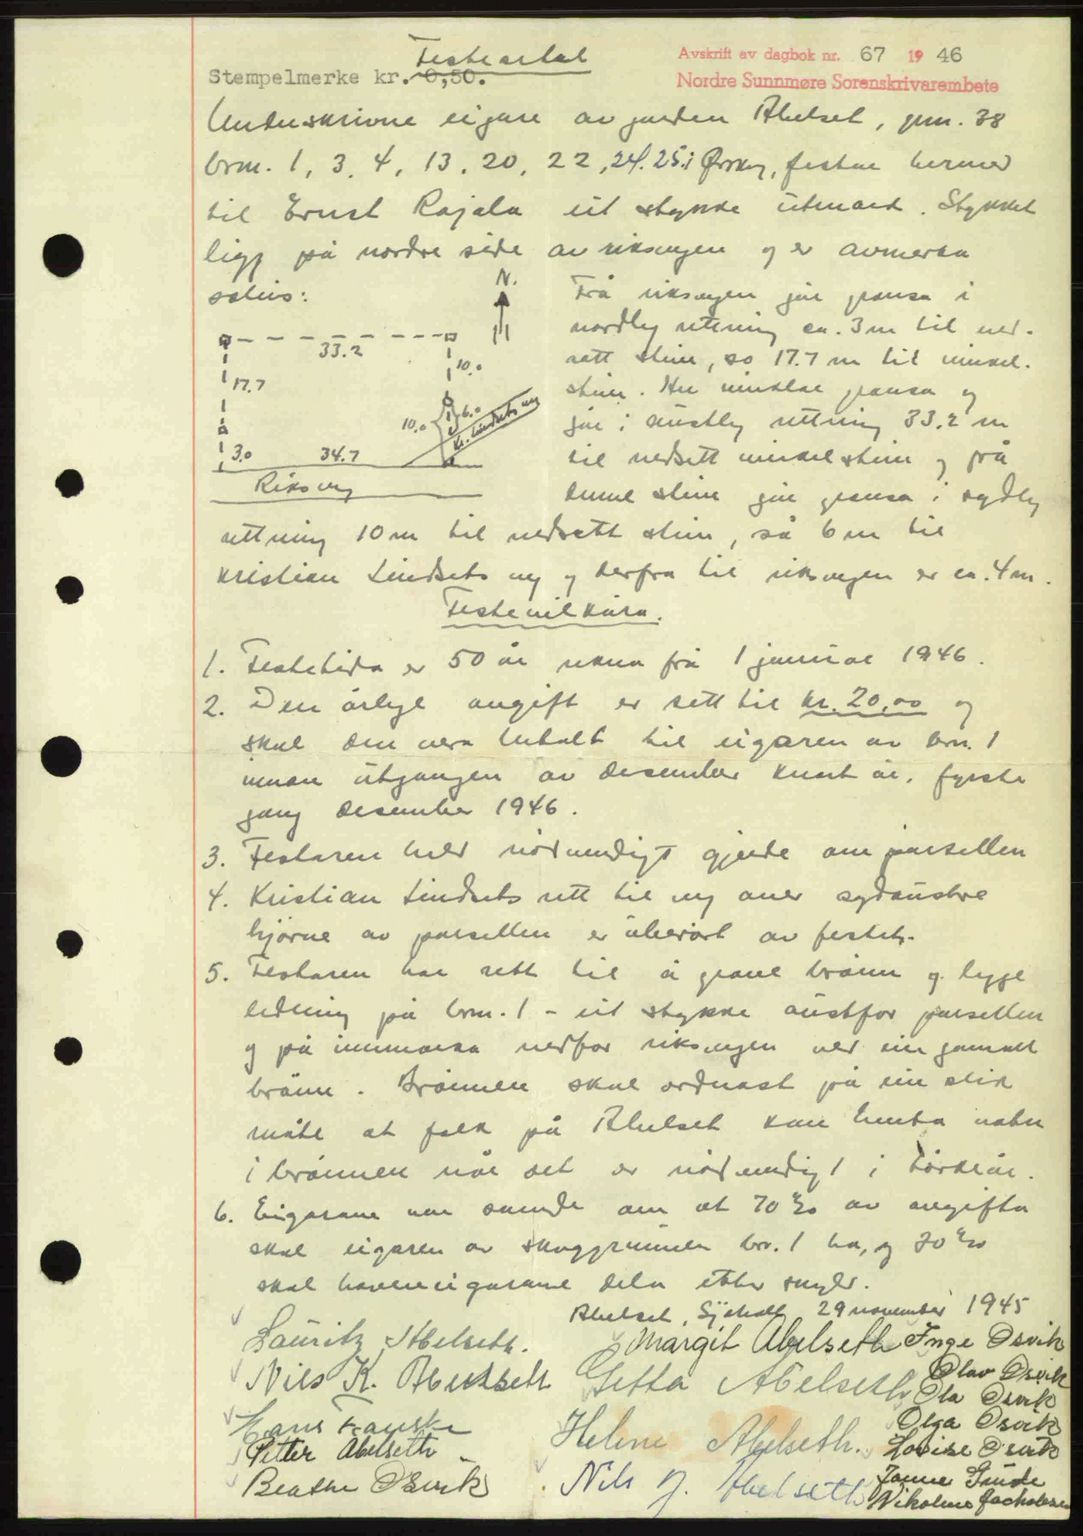 Festesetel
Stempelmerke kr. 0,50.
Avskrift av dagbok nr. 67 1946
Nordre Sunnmøre Sorenskrivarembete
Underskrivne eigare av garden Abelset, gnr. 38
brnr. 1, 3, 4, 13, 20, 22, 24, 25 i Ørskog, festar hermed
til Ernst Rajala eit stykke utmark. Stykket
ligg på nordre side av riksvegen og er avmerka
soleis:
N.
33.2
17.7
10.0
10.0
6.0
Kr. Lindsets veg
3.0
34.7
Riksveg
Frå riksvegen går grensa i
nordleg retning ca. 3 m til ned-
sett stein, so 17.7 m til vinkel-
stein. Her vinklar grensa og
går i austleg retning 33.2 m
til nedsett vinkelstein og frå
denne stein går grensa i sydleg
retning 10 m til nedsett stein, så 6 m til
Kristian Lindsets veg og derfra til riksvegen er ca. 4 m.
Festevilkåra.
1. Festetida er 50 år rekna frå 1 januar 1946.
2. Den årlege avgift er sett til kr. 20,00 og
skal den vera betalt til eigaren av brn. 1
innan utgangen av desember kvart år, fyrste
gang desember 1946.
3. Festaren held nødvendigt gjerde om parsellen
4. Kristian Lindsets rett til veg over sydaustre
hjørne av parsellen er uberørt av festet.
5. Festaren har rett til å grave brønn og legge
ledning på brnr. 1 - eit stykke austfor parsellen
og på innmarka nedfor riksvegen ved ein gamall
brønn. Brønnen skal ordnast på ein slik
måte at folk på Abelset kan henta vatn
i brønnen når det er nødvendigt i tørkeår.
6. Eigarane var samde om at 70 % av avgifta
skal eigaren av skoggrunnen bnr. 1 ha, og 30 %
skal hamneeigarane dela etter skyld.
Abelset, Sjøholt, 29 november 1945
Lauritz Abelseth.
Margit Abelseth
Inge Osvik
Nils K. Abelseth
Gitta Abelseth
Olav Osvik
Ola Osvik
Hans Fauske
Olga Osvik
Petter Abelseth
Helene Abelseth.
Lovise Osvik
Beathe Osvik
Nils J. Abelseth
Janne Grude
Nikoline Jacholsen